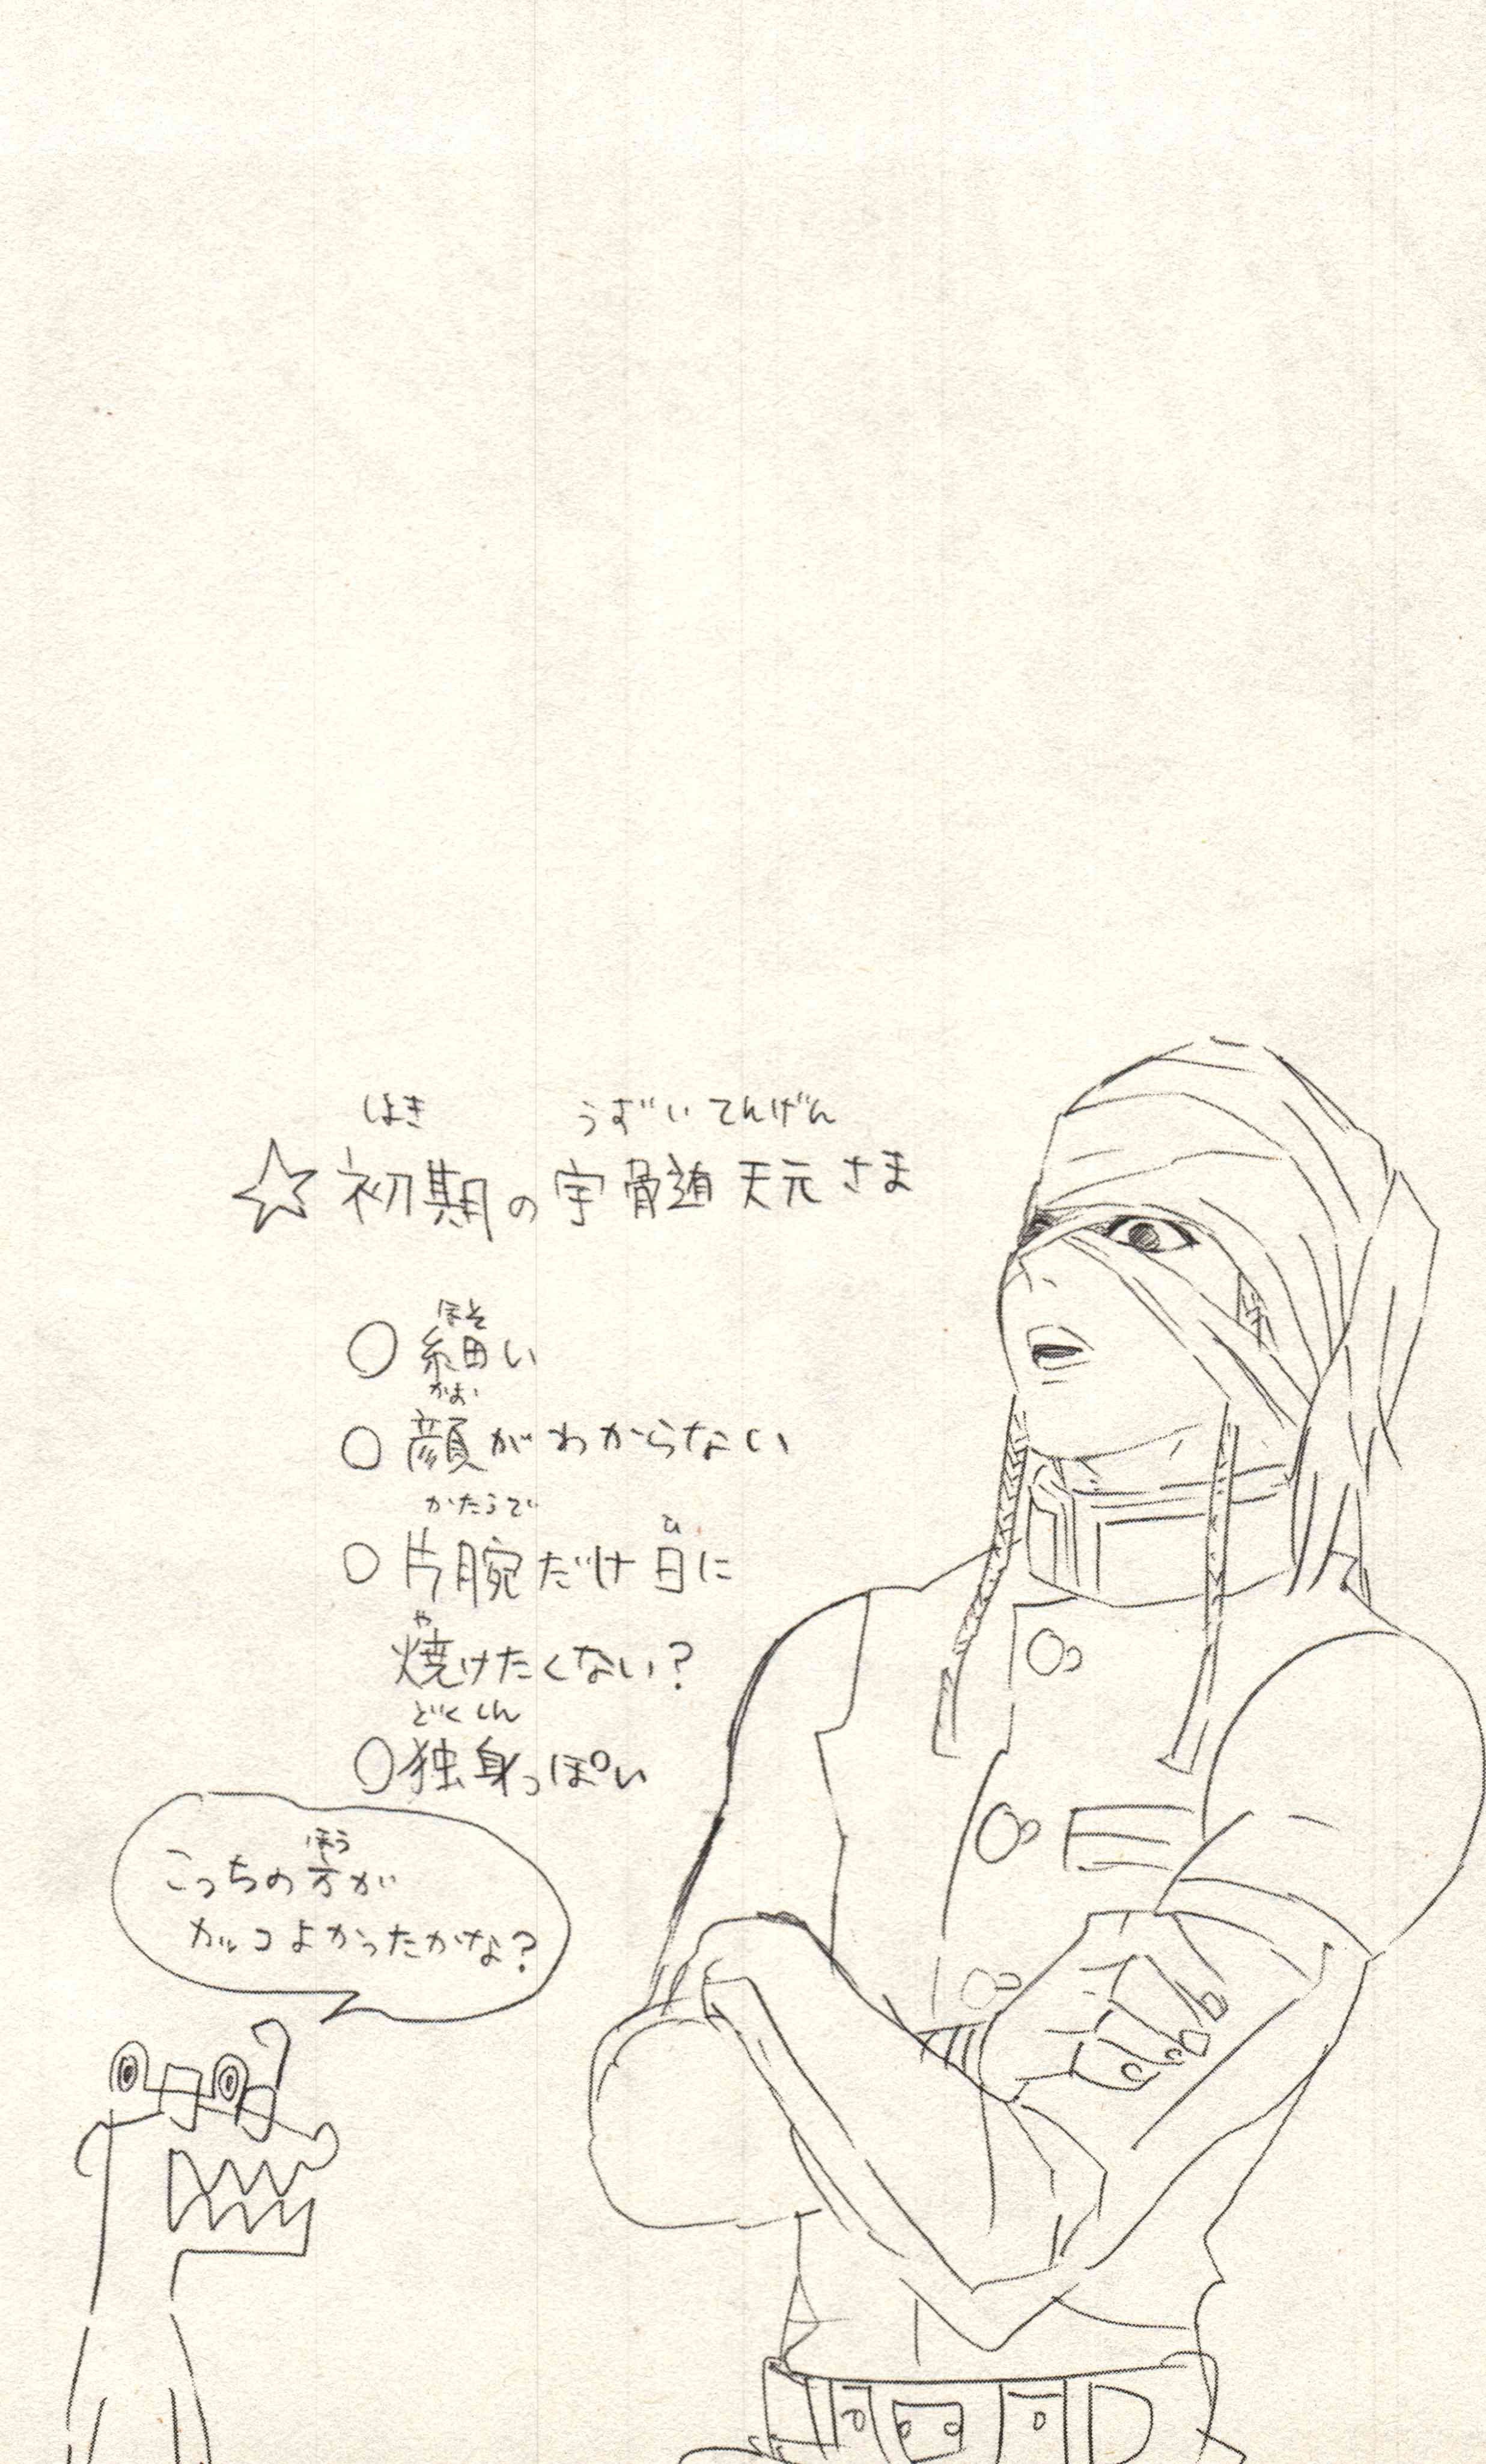 しょき うずい てんげん
☆初期の宇髄天元さま
ほそ
○細い
かお
○顔がわからない
かたうで ひ
○片腕だけ日に
や
焼けたくない?
どくしん
○独身っぽい
ほう
こっちの方が
カッコよかったかな?